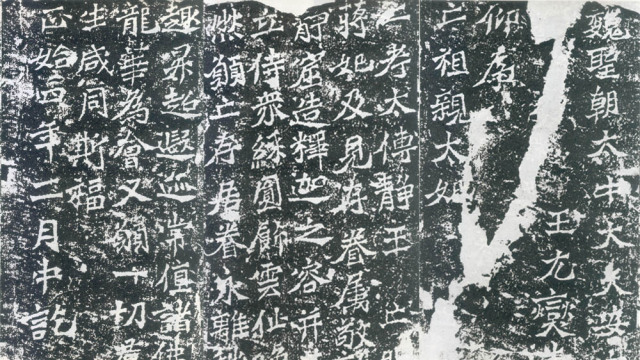 魏聖朝太中大夫安
王元燮
仰為
亡祖親太妃
亡考太傅靜王 亡
蔣妃及見存眷屬敬
窟造釋迦之容并
立侍眾綵圓飾雲仙
然願亡存居眷永離
趣昇超遐迹常值諸佛
龍華為會又願一切
生咸同斯福
正始四年二月中訖